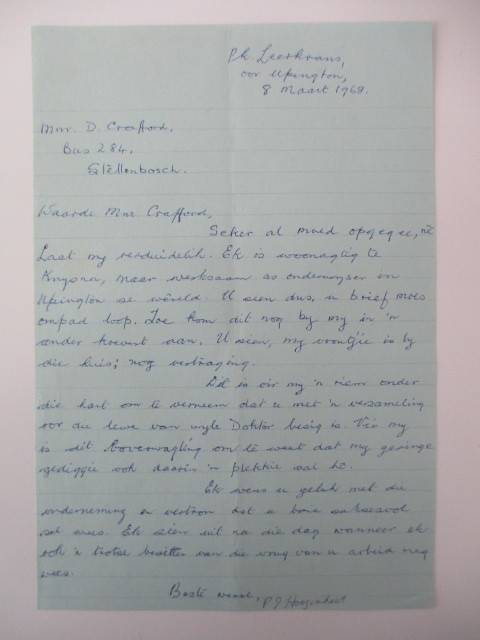 Pk Leerkrans,
oor Upington,
8 Maart 1968.
Mnr. D. Crafford,
Bus 284,
Stellenbosch.
Waarde Mnr Crafford,
Seker al moed opgegee, nè
Laat my verduidelik. Ek is woonagtig te
Knysna, maar werksaam as onderwyser in
Upington se wêreld. U sien dus, u brief moes
ompad loop. Toe kom dit nog by my in 'n
ander koevert aan. U sien, my vroutjie is by
die huis; nog vertraging.
Dit is vir my 'n riem onder
die hart om te verneem dat u met 'n versameling
oor die lewe van wyle Doktor besig is. Vir my
is dit bowerwagting om te weet dat my geringe
gediggie ook daarin 'n plekkie sal hê.
Ek wens u geluk met die
onderneming en vertrou dat u baie suksesvol
sal wees. Ek sien uit na die dag wanneer ek
ook 'n trotse besitter van die vrug van u arbeid mag
wees.
Beste wense, P J